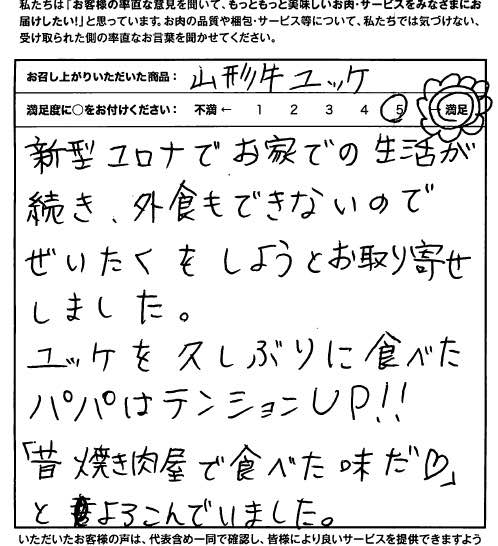 私たちは「お客様の率直な意見を聞いて、もっともっと美味しいお肉・サービスをみなさまにお
届けしたい!」と思っています。お肉の品質や梱包・サービス等について、私たちでは気づけない、
受け取られた側の率直なお言葉を聞かせてください。
お召し上がりいただいた商品: 山形牛ユッケ
満足度に○をお付けください: 不満 ← 1 2 3 4 5 → 満足
新型コロナでお家での生活が
続き、外食もできないので
ぜいたくをしようとお取り寄せ
しました。
ユッケを久しぶりに食べた
パパはテンションUP!!
「昔焼き肉屋で食べた味だ♡」
とよろこんでいました。
いただいたお客様の声は、代表含め一同で確認し、皆様により良いサービスを提供できますよう